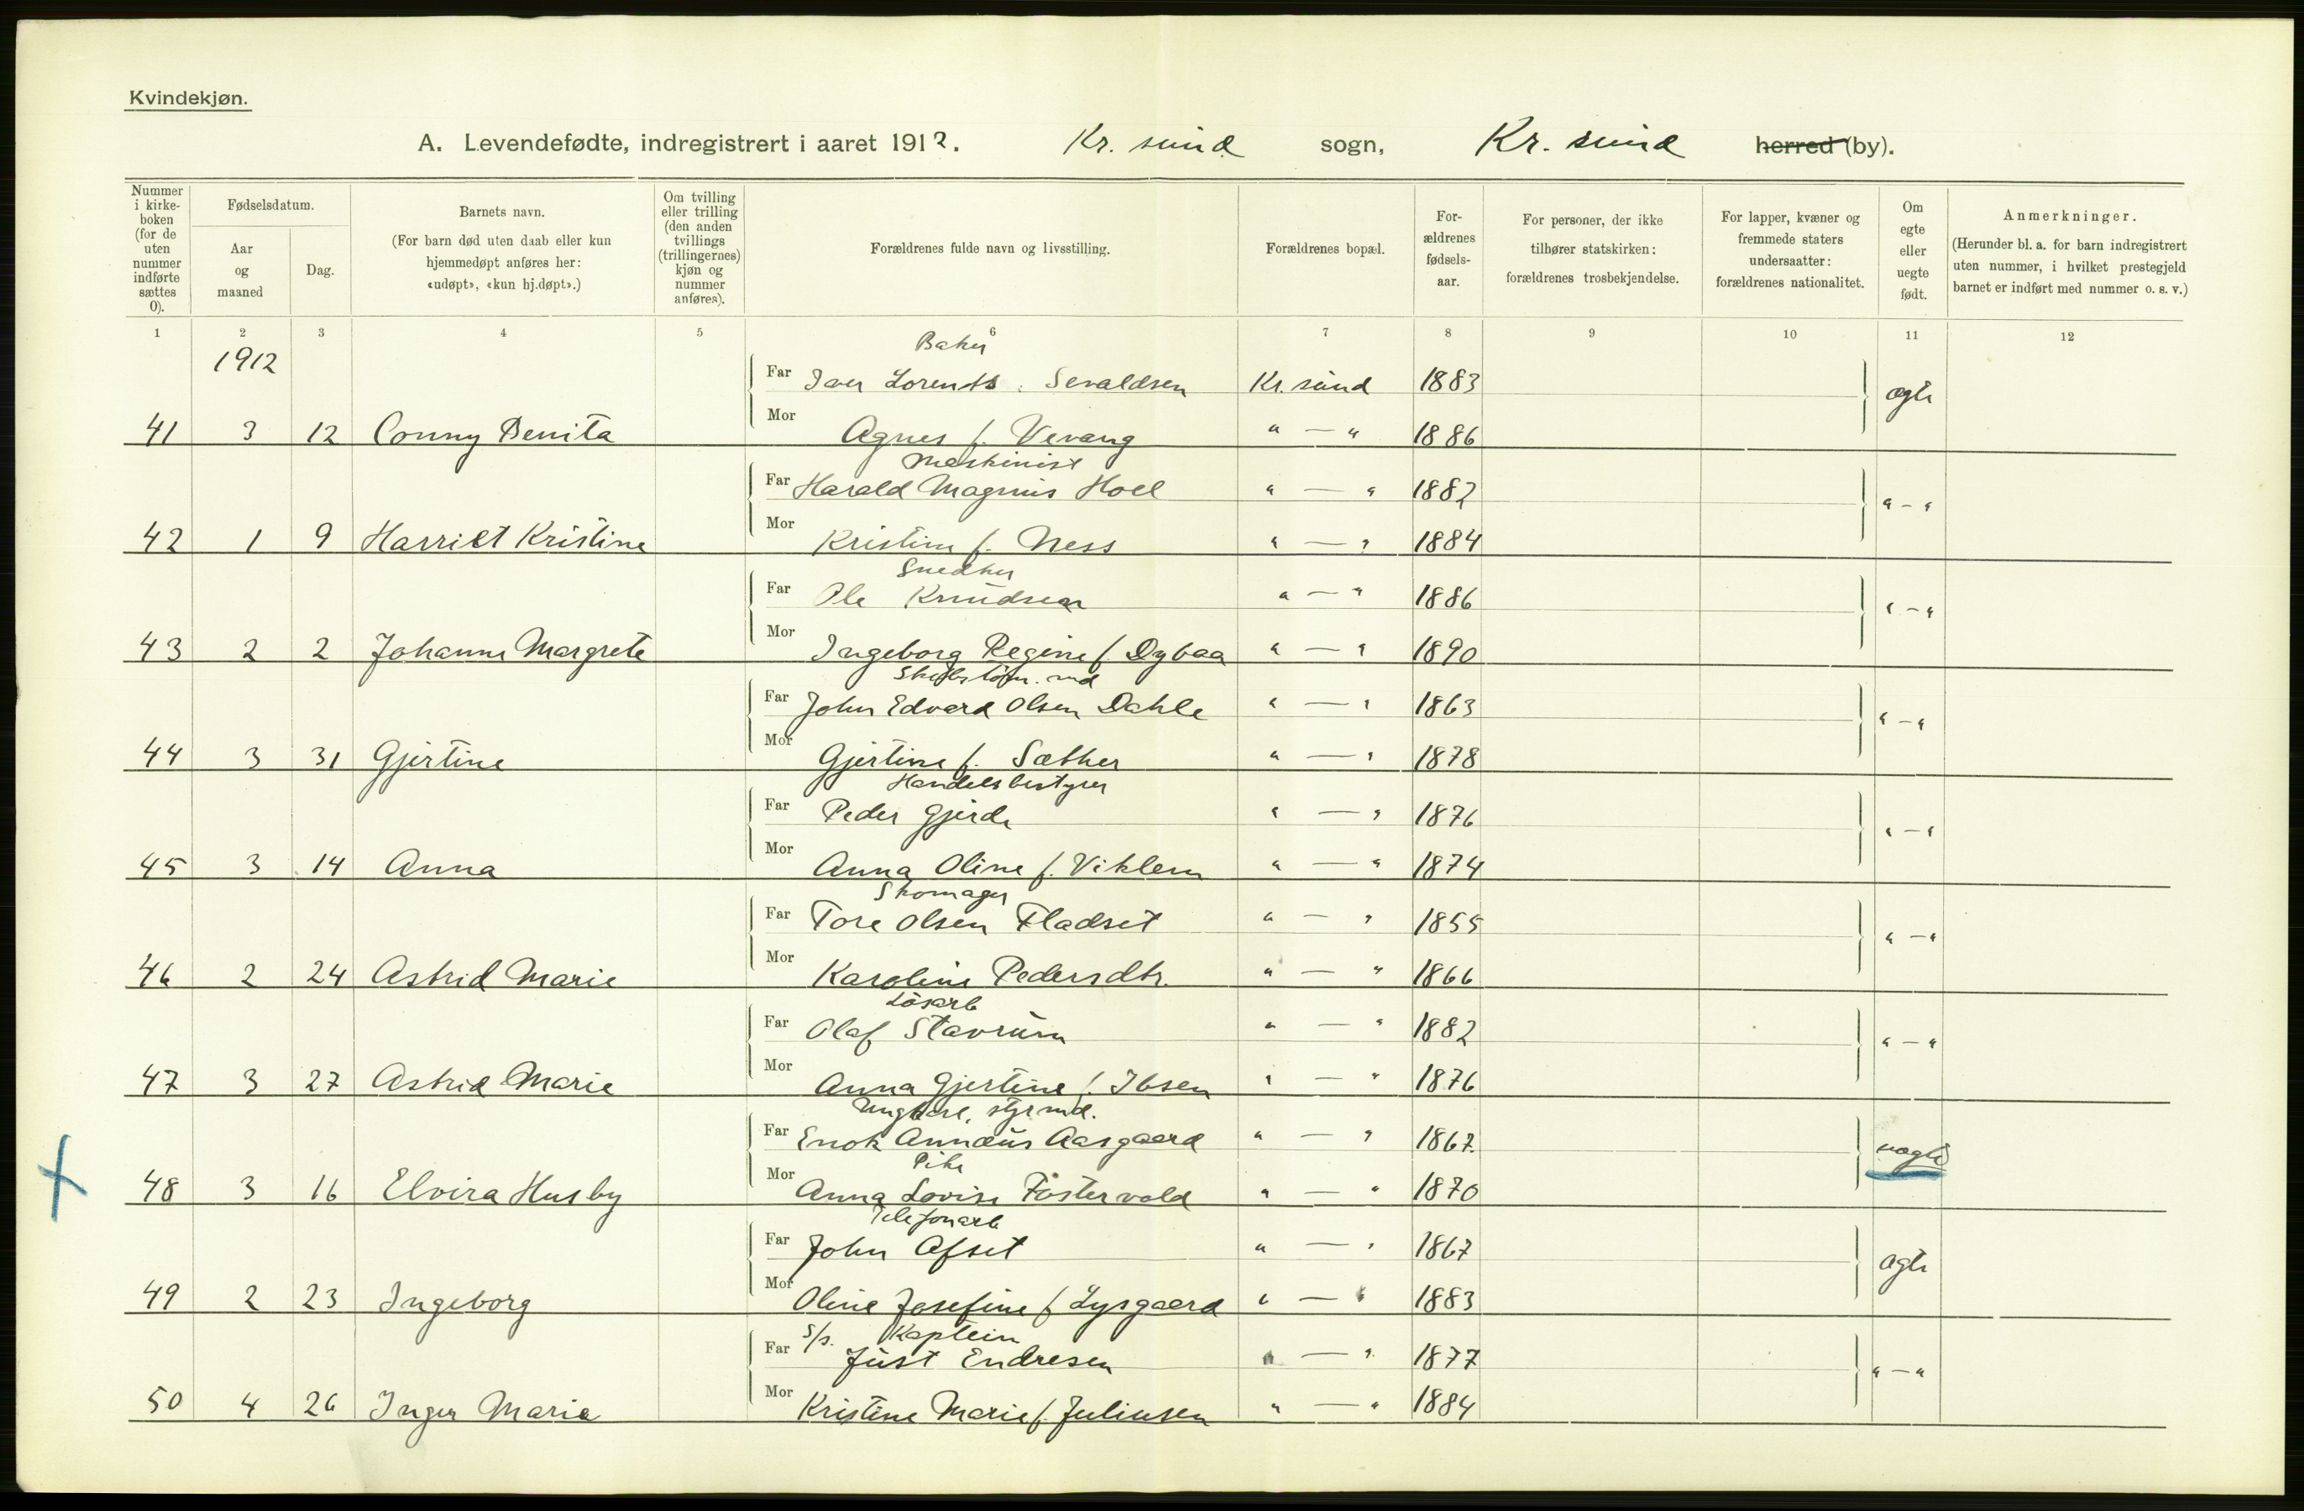 Kvindekjøn.
A. Levendefødte, indregistrert i aaret 1912. Kr. sund sogn, Kr. sund herred (by).
Nummer i kirke-boken (for de uten nummer indførte sættes 0).
Fødselsdatum.
Aar og maaned
Dag.
Barnets navn.
(For barn død uten daab eller kun hjemmedøpt anføres her: «udøpt», «kun hj.døpt».)
Om tvilling eller trilling (den anden tvillings (trillingernes) kjøn og nummer anføres).
Forældrenes fulde navn og livsstilling.
Forældrenes bopæl.
For-ældrenes fødsels-aar.
For personer, der ikke tilhører statskirken: forældrenes trosbekjendelse.
For lapper, kvæner og fremmede staters undersaatter: forældrenes nationalitet.
Om egte eller uegte født.
Anmerkninger.
(Herunder bl. a. for barn indregistrert uten nummer, i hvilket prestegjeld barnet er indført med nummer o. s. v.)
1 2 3 4 5 6 7 8 9 10 11 12
1912
Baker
Far Iver Lorents Sevaldsen Kr. sund 1883 ægte
41 3 12 Conny Benita Mor Agnes f. Vevang " — " 1886
Maskinist
Far Harald Magnus Hoel " — " 1882 " — "
42 1 9 Harriet Kristine Mor Kristine f. Ness " — " 1884
Snedker
Far Ole Knudsen " — " 1886 " — "
43 2 2 Johanne Margrete Mor Ingeborg Regine f. Dybaa " — " 1890
Skibstøm. md
Far John Edvard Olsen Dahle " — " 1863 " — "
44 3 31 Gjertine Mor Gjertine f. Sæther " — " 1878
Handelsbestyrer
Far Peder Gjerde " — " 1876 " — "
45 3 14 Anna Mor Anna Oline f. Viklem " — " 1874
Skomager
Far Tore Olsen Fladset " — " 1855 " — "
46 2 24 Astrid Marie Mor Karoline Pedersdtr. " — " 1866
Løsarb
Far Olaf Stavrum " — " 1882 " — "
47 3 27 Astrid Marie Mor Anna Gjertine f. Ibsen " — " 1876
Ungkarl, styrmd.
Far Enok Annæus Aasgaard " — " 1867 uægte
Pike
48 3 16 Elvira Husby Mor Anna Lovise Fostervold " — " 1870
Telefonarb
Far John Afset " — " 1867 ægte
49 2 23 Ingeborg Mor Oline Josefine f. Lysgaard " — " 1883
S/s. Kaptein
Far Just Endresen " — " 1877 " — "
50 4 26 Inger Marie Mor Kristine Marie f. Juliusen " — " 1884